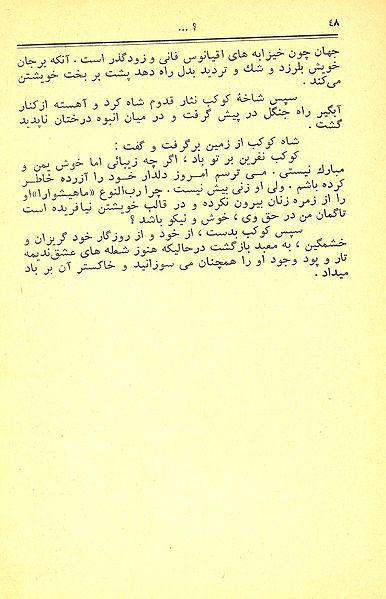 ۴۸
؟ ...
جهان چون خیزابه های اقیانوس فانی و زودگذر است . آنکه برجان
خویش بلرزد و شك و تردید بدل راه دهد پشت بر بخت خویشتن
می‌کند .
سپس شاخهٔ کوکب نثار قدوم شاه کرد و آهسته ازکنار
آبگیر راه جنگل در پیش گرفت و در میان انبوه درختان ناپدید
گشت .
شاه کوکب از زمین برگرفت و گفت :
کوکب نفرین بر تو باد ، اگر چه زیبائی اما خوش یمن و
مبارك نیستی . مـی ترسم امـروز دلدار خـود را آزرده خاطـر
کرده باشم . ولی او زنی بیش نیست . چرا رب‌النوع «ماهیشوارا» او
را از زمره زنان بیرون نکرده و در قالب خویشتن نیافریده است
تاگمان من در حق وی ، خوش و نیکو باشد ؟
سپس کوکب بدست ، از خود و از روزگار خود گریزان و
خشمگین ، به معبد بازگشت درحالیکه هنوز شعله های عشق‌ندیمه
تار و پود وجود او را همچنان می سوزانید و خاکستر آن بر باد
میداد .